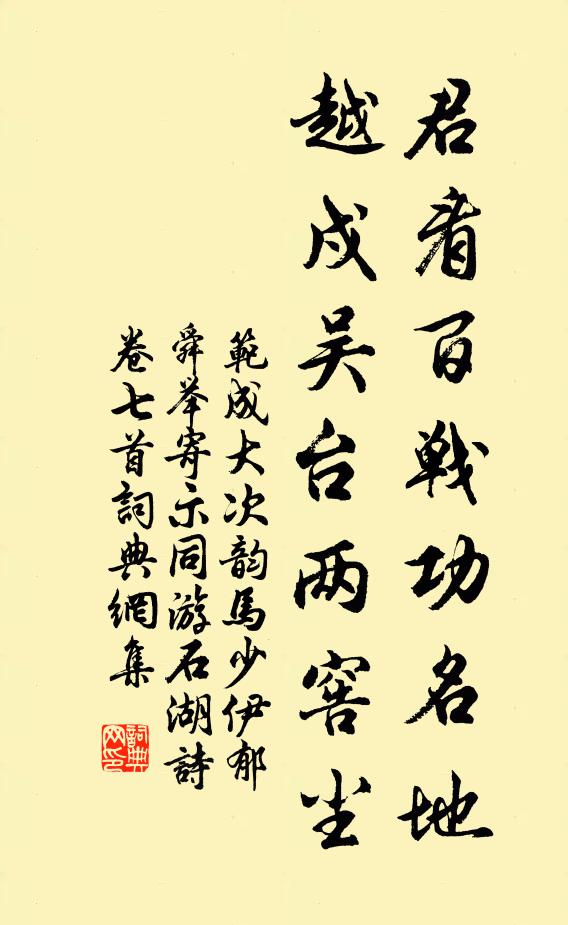 君看百戰功名地
越戍吴台两窖尘
範成大次韵馬少伊郁
舜举寄示同游石湖詩
卷七首詞典網集
詞典网印